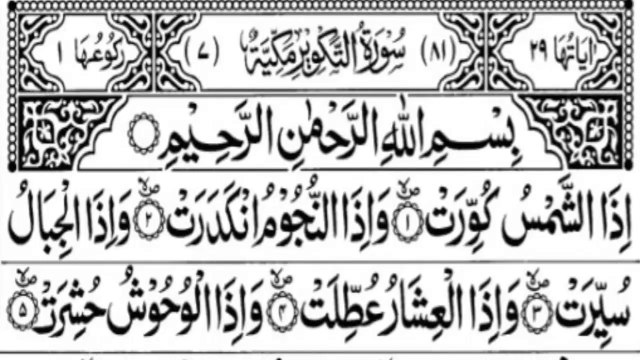 اٰيَاتُهَا ٢٩ (٨١) سُوْرَةُ التَّكْوِيْرِ مَكِّيَّةٌ (٧) رُكُوْعُهَا ١
بِسْمِ اللّٰهِ الرَّحْمٰنِ الرَّحِيْمِ
اِذَا الشَّمْسُ كُوِّرَتْ ۪ۙ‏﴿۱﴾ وَاِذَا النُّجُوْمُ انْكَدَرَتْ ۪ۙ‏﴿۲﴾ وَاِذَا الْجِبَالُ
سُيِّرَتْ ۪ۙ‏﴿۳﴾ وَاِذَا الْعِشَارُ عُطِّلَتْ ۪ۙ‏﴿۴﴾ وَاِذَا الْوُحُوْشُ حُشِرَتْ ۪ۙ‏﴿۵﴾